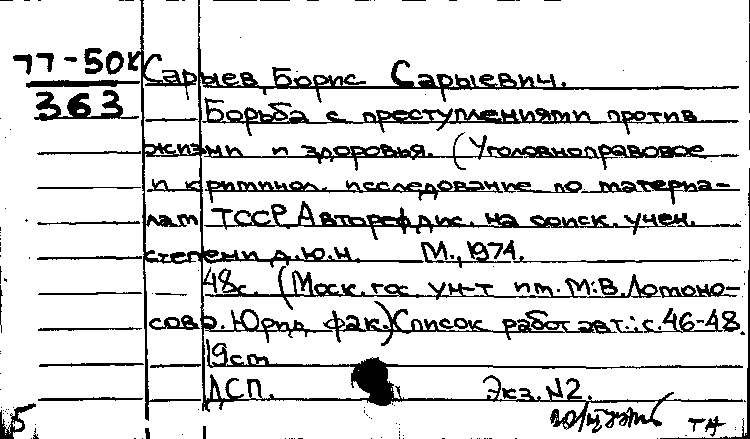 77-50к
363
Сарыев, Борис Сарыевич.
Борьба с преступлениями против
жизни и здоровья. (Уголовноправовое
и криминол. исследование по материа-
лам ТССР. Автореф дис. на соиск. учен.
степени д.ю.н. М., 1974.
48с. (Моск. гос. ун-т им. М.В. Ломоно-
сова. Юрид. фак.) Список работ авт.: с. 46-48.
19см
ДСП. Экз. N2.
5 ТА